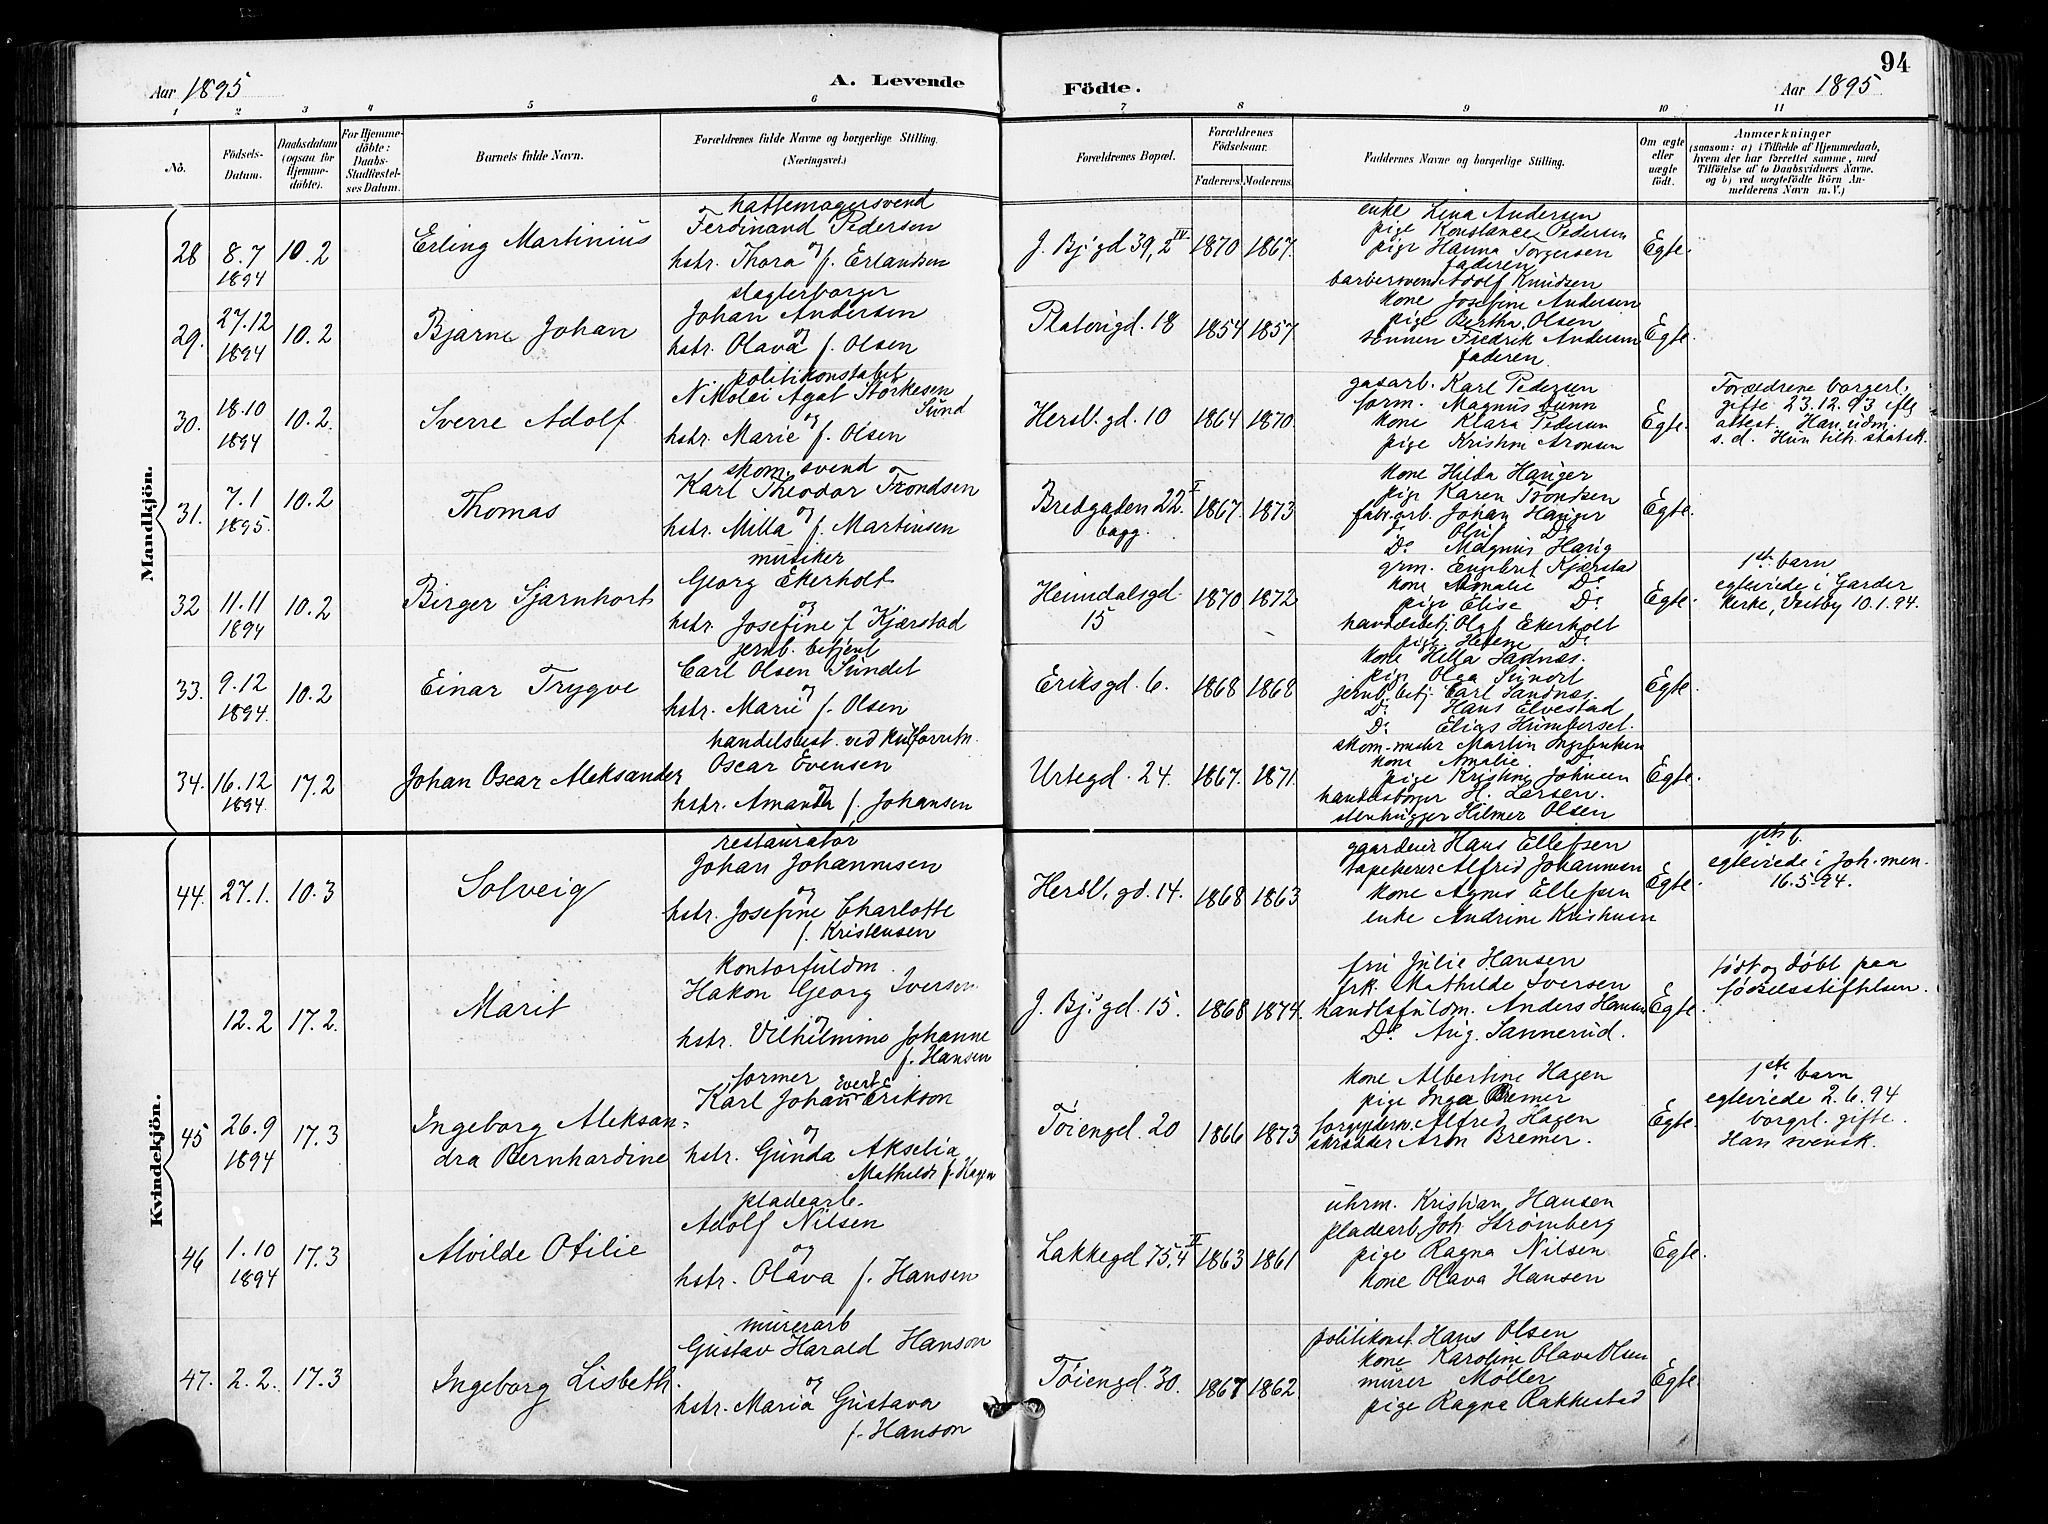 94
Aar 1895
A. Levende
Födte.
Aar 1895
1 2 3 4 5 6 7 8 9 10 11
No.
Födsels-
Datum.
Daabsdatum
(ogsaa for
Hjemme-
döbte).
For Hjemme-
döbte:
Daabs-
Stadfæstel-
ses Datum.
Barnets fulde Navn.
Forældrenes fulde Navne og borgerlige Stilling.
(Næringsvei.)
Forældrenes Bopæl.
Forældrenes
Födselsaar.
Faderens. Moderens.
Faddernes Navne og borgerlige Stilling.
Om ægte
eller
uægte
födt.
Anmærkninger
(saasom: a) i Tilfælde af Hjemmedaab,
hvem der har forrettet samme, med
Tilföielse af to Daabsvidners Navne.
og b) ved uægtefödte Börn An-
melderens Navn m. V.)
Mandkjön.
28 8.7
1894
10.2
Erling Martinius
hattemagersvend
Ferdinand Pedersen
og
hstr. Thora f. Erlandsen
J. Bj. gd 39, 2 IV
1870 1867.
enke Lina Andersen
pige Konstance Pedersen
pige Hanna Torgersen
faderen
barbersvend Adolf Knudsen
Egte.
29. 27.12
1894
10.2
Bjarne Johan
slagterborger
Johan Andersen
og
hstr. Olava f. Olsen
Platougd. 18
1854 1857.
kone Josefine Andersen
pige Bertha Olsen
sønnen Fredrik Andersen
faderen
Egte.
30. 18.10
1894
10.2.
Sverre Adolf
politikonstabel
Nikolai Agat Storkesen
Sund
og
hstr. Marie f. Olsen
Hersl. gd. 10
1864 1870.
gasarb. Karl Pedersen
form. Magnus Lunn
kone Klara Pedersen
pige Kristine Aronsen
Egte.
Forældrene borgerl.
gifte 23.12.93 iflg
attest. Han eidm.
s. d. Hun tilh. statsk.
31. 7.1
1895.
10.2
Thomas
skom. svend
Karl Theodor Trondsen
og
hstr. Milla f. Martinsen
Bredgaden 22. I
bagg.
1867. 1873
kone Hilda Hauger
pige Karen Trondsen
fabr. arb. Johan Hauger
Do Oluf Do
Do Magnus Haug
Egte.
32 11.11
1894
10.2
Birger Sjarnhort
musiker
Georg Ekerholt
og
hstr. Josefine f. Kjærstad
Heimdalsgd.
15
1870 1872
grm. Engebret Kjærstad
kone Amalie Do
pige Elise Do
handelsbetj. Olaf Ekerholt
pige Helene Do
Egte.
1st. barn
egteviede i Garder
Kirke, Vestby 10.1.94.
33. 9.12
1894.
10.2
Einar Trygve
jernb. betjent
Carl Olsen Sundet
og
hstr. Marie f. Olsen
Eriksgd. 6.
1868 1868
kone Hella Sadnæs.
pige Olga Sundet
jernb. betj. Carl Sandnæs.
Do Hans Elvestad
Do Elias Humberset.
Egte.
34. 16.12
1894.
17.2
Johan Oscar Aleksander
handelsbest. ved kulforretn.
Oscar Evensen
og
hstr. Amanda f. Johansen
Urtegd. 24.
1867. 1871.
skom. mester Martin Ingebretsen
kone Amalie Do
pige Kristine Johnsen
handelsborger H. Larsen.
stenhugger Hilmer Olsen
Egte.
Kvindekjön.
44. 27.1.
10.3
Solveig
restauratör
Johan Johannesen
og
hstr. Josefine Charlotte
f. Kristensen
Hersl. gd. 14.
1868 1863
gaardeier Hans Ellefsen
tapetserer Alfred Johannesen
kone Agnes Ellefsen
enke Andrine Kristensen
Egte.
1ste b.
egteviede i Joh. men.
16.5.94.
12.2 17.2.
Marit
kontorfuldm.
Hakon Georg Iversen
og
hstr. Vilhelmine Johanne
f. Hansen
J. Bj. gd. 15.
1868 1874.
fru Julie Hansen
frk. Mathilde Iversen
handlsfuldm. Anders Hansen
Do Aug. Sannerud.
Egte.
født og døbt paa
fødselsstiftelsen.
45 26.9
1894
17.3
Ingeborg Aleksan-
dra Bernhardine
former
Karl Johan Evert Erikson
og
hstr. Gunda Akselia
Mathilde f. Hagen
Tøiengd. 20
1866 1873
kone Albertine Hagen
pige Inga Bremer
forgyldersv. Alfred Hagen
skrædder Arm Bremer.
Egte.
1ste barn
egteviede 2.6.94
borgerl. gifte.
Han svensk.
46 1.10
1894
17.3
Alvilde Otilie
pladearb.
Adolf Nilsen
og
hstr. Olava f. Hansen
Lakkegd 75, 4 II
1863 1861
uhrm. Kristian Hansen
pladearb Joh. Strømberg
pige Ragna Nilsen
kone Olava Hansen
Egte.
47. 2.2.
17.3
Ingeborg Lisbeth.
murerarb
Gustav Harald Hanson
og
hstr. Maria Gustava
f. Hanson
Tøiengd. 30.
1867 1862
politikonst. Hans Olsen
kone Karoline Olava Olsen
murer Møller
pige Ragna Rakkestad
Egte.